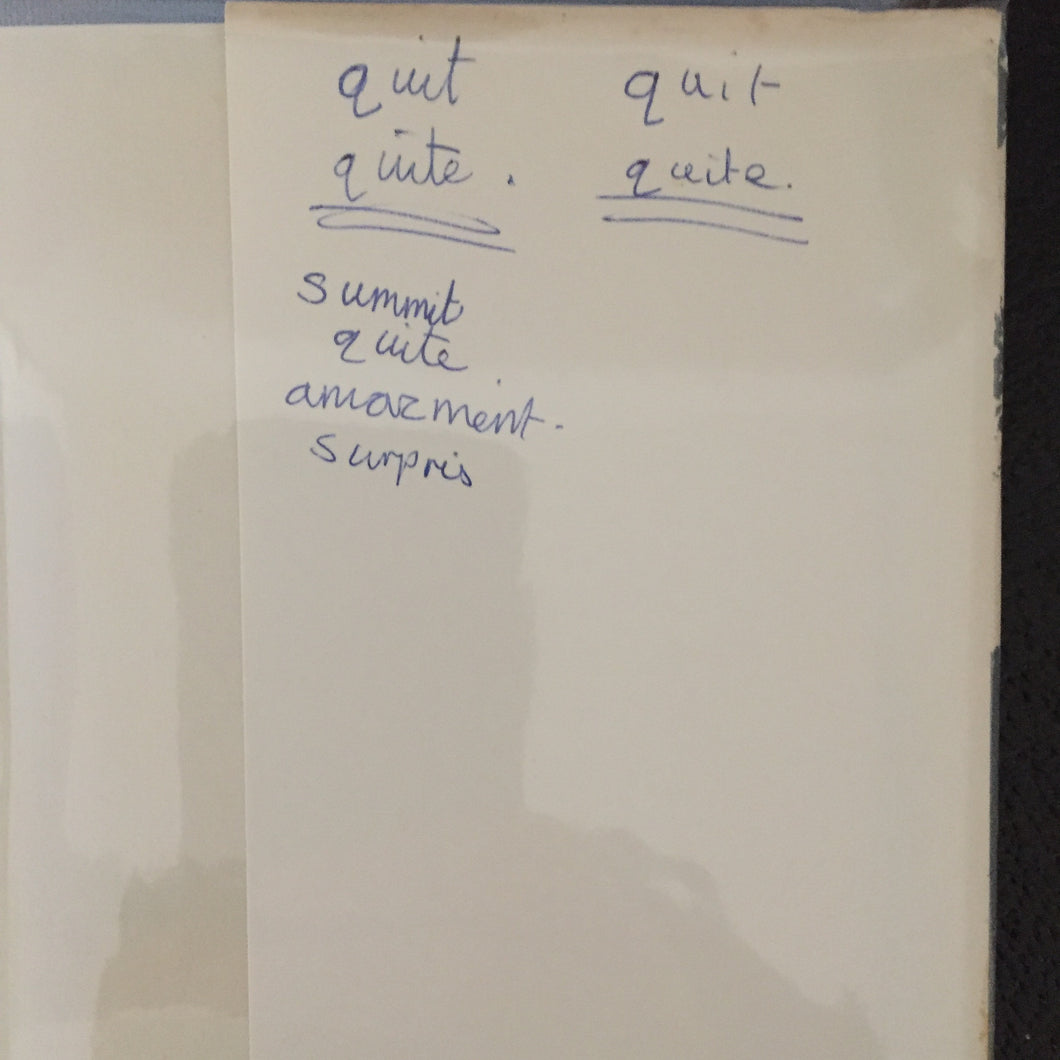 quit quit
quite. quite.
summit
quite
amazment.
surpris